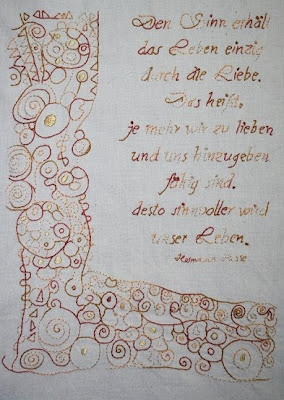 Den Sinn erhält
das Leben einzig
durch die Liebe.
Das heißt,
je mehr wir zu lieben
und uns hinzugeben
fähig sind.
desto sinnvoller wird
unser Leben.
Hermann Hesse